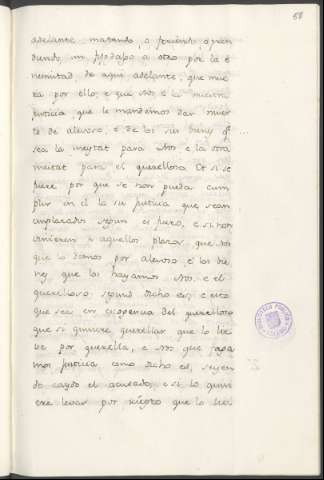 58
adelante matando, o firiendo o pren
diendo, un fijodalgo a otro por la e
nemistad, de aqui adelante, que mue
ra por ello, e que Nos e la nuestra
justicia que le mandemos dar muer
te de alevoso, e de los sus bienes q
sea la meytat para Nos e la otra
meitat para el querelloso. Et si se
fuere por que se non pueda cum
plir en el la su justicia que sean
emplazados segun es fuero, e si non
vinieren a aquellos plazos que Nos
que lo damos por alevoso e los bie
nes que los hayamos Nos, e el
querelloso segund dicho es, e esto
que sea en escogencia del querelloso
que si quisiere querellar que lo lie
ve por querella, e Nos que faga
mos justicia como dicho es, seyen
do caydo el acusado, e si lo quisi
ere levar por riepto que lo lieve